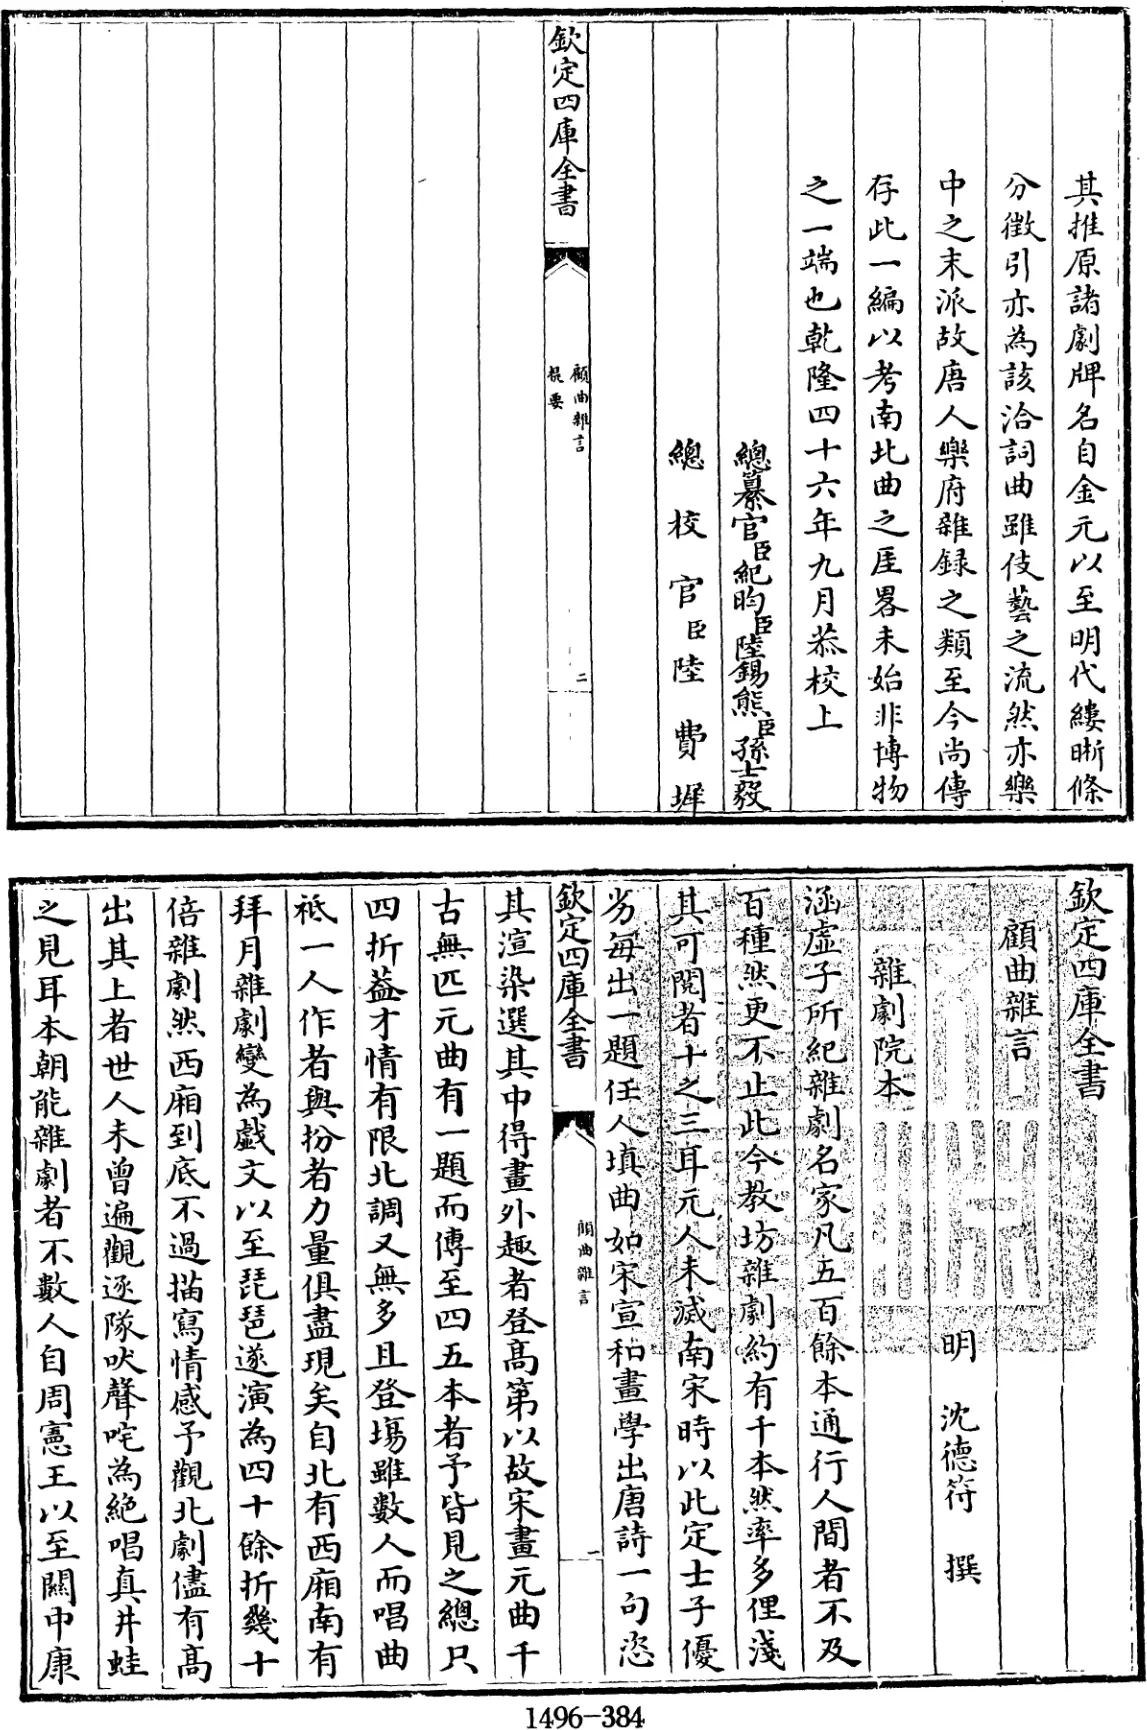 其推原諸劇牌名自金元以至明代縷晰條
分徵引亦為該洽詞曲雖伎藝之流然亦樂
中之末派故唐人樂府雜録之類至今尚傳
存此一編以考南北曲之厓畧未始非博物
之一端也乾隆四十六年九月恭校上
總纂官臣紀昀臣陸錫熊臣孫士毅
總校官臣陸費墀
欽定四庫全書
顧曲雜言
提要
二
欽定四庫全書
顧曲雜言
明 沈德符 撰
雜劇院本
涵虛子所紀雜劇名家凡五百餘本通行人間者不及
百種然更不止此今教坊雜劇約有千本然率多俚淺
其可閱者十之三耳元人未滅南宋時以此定士子優
劣每出一題任人填曲如宋宣和畫學出唐詩一句恣
欽定四庫全書
顧曲雜言
一
其渲染選其中得畫外趣者登高第以故宋畫元曲千
古無匹元曲有一題而傳至四五本者予皆見之總只
四折葢才情有限北調又無多且登塲雖數人而唱曲
祇一人作者與扮者力量俱盡現矣自北有西廂南有
拜月雜劇變為戲文以至琵琶遂演為四十餘折幾十
倍雜劇然西廂到底不過描寫情感予觀北劇儘有高
出其上者世人未曾遍觀逐隊吠聲咤為絶唱真井蛙
之見耳本朝能雜劇者不數人自周憲王以至關中康
1496-384